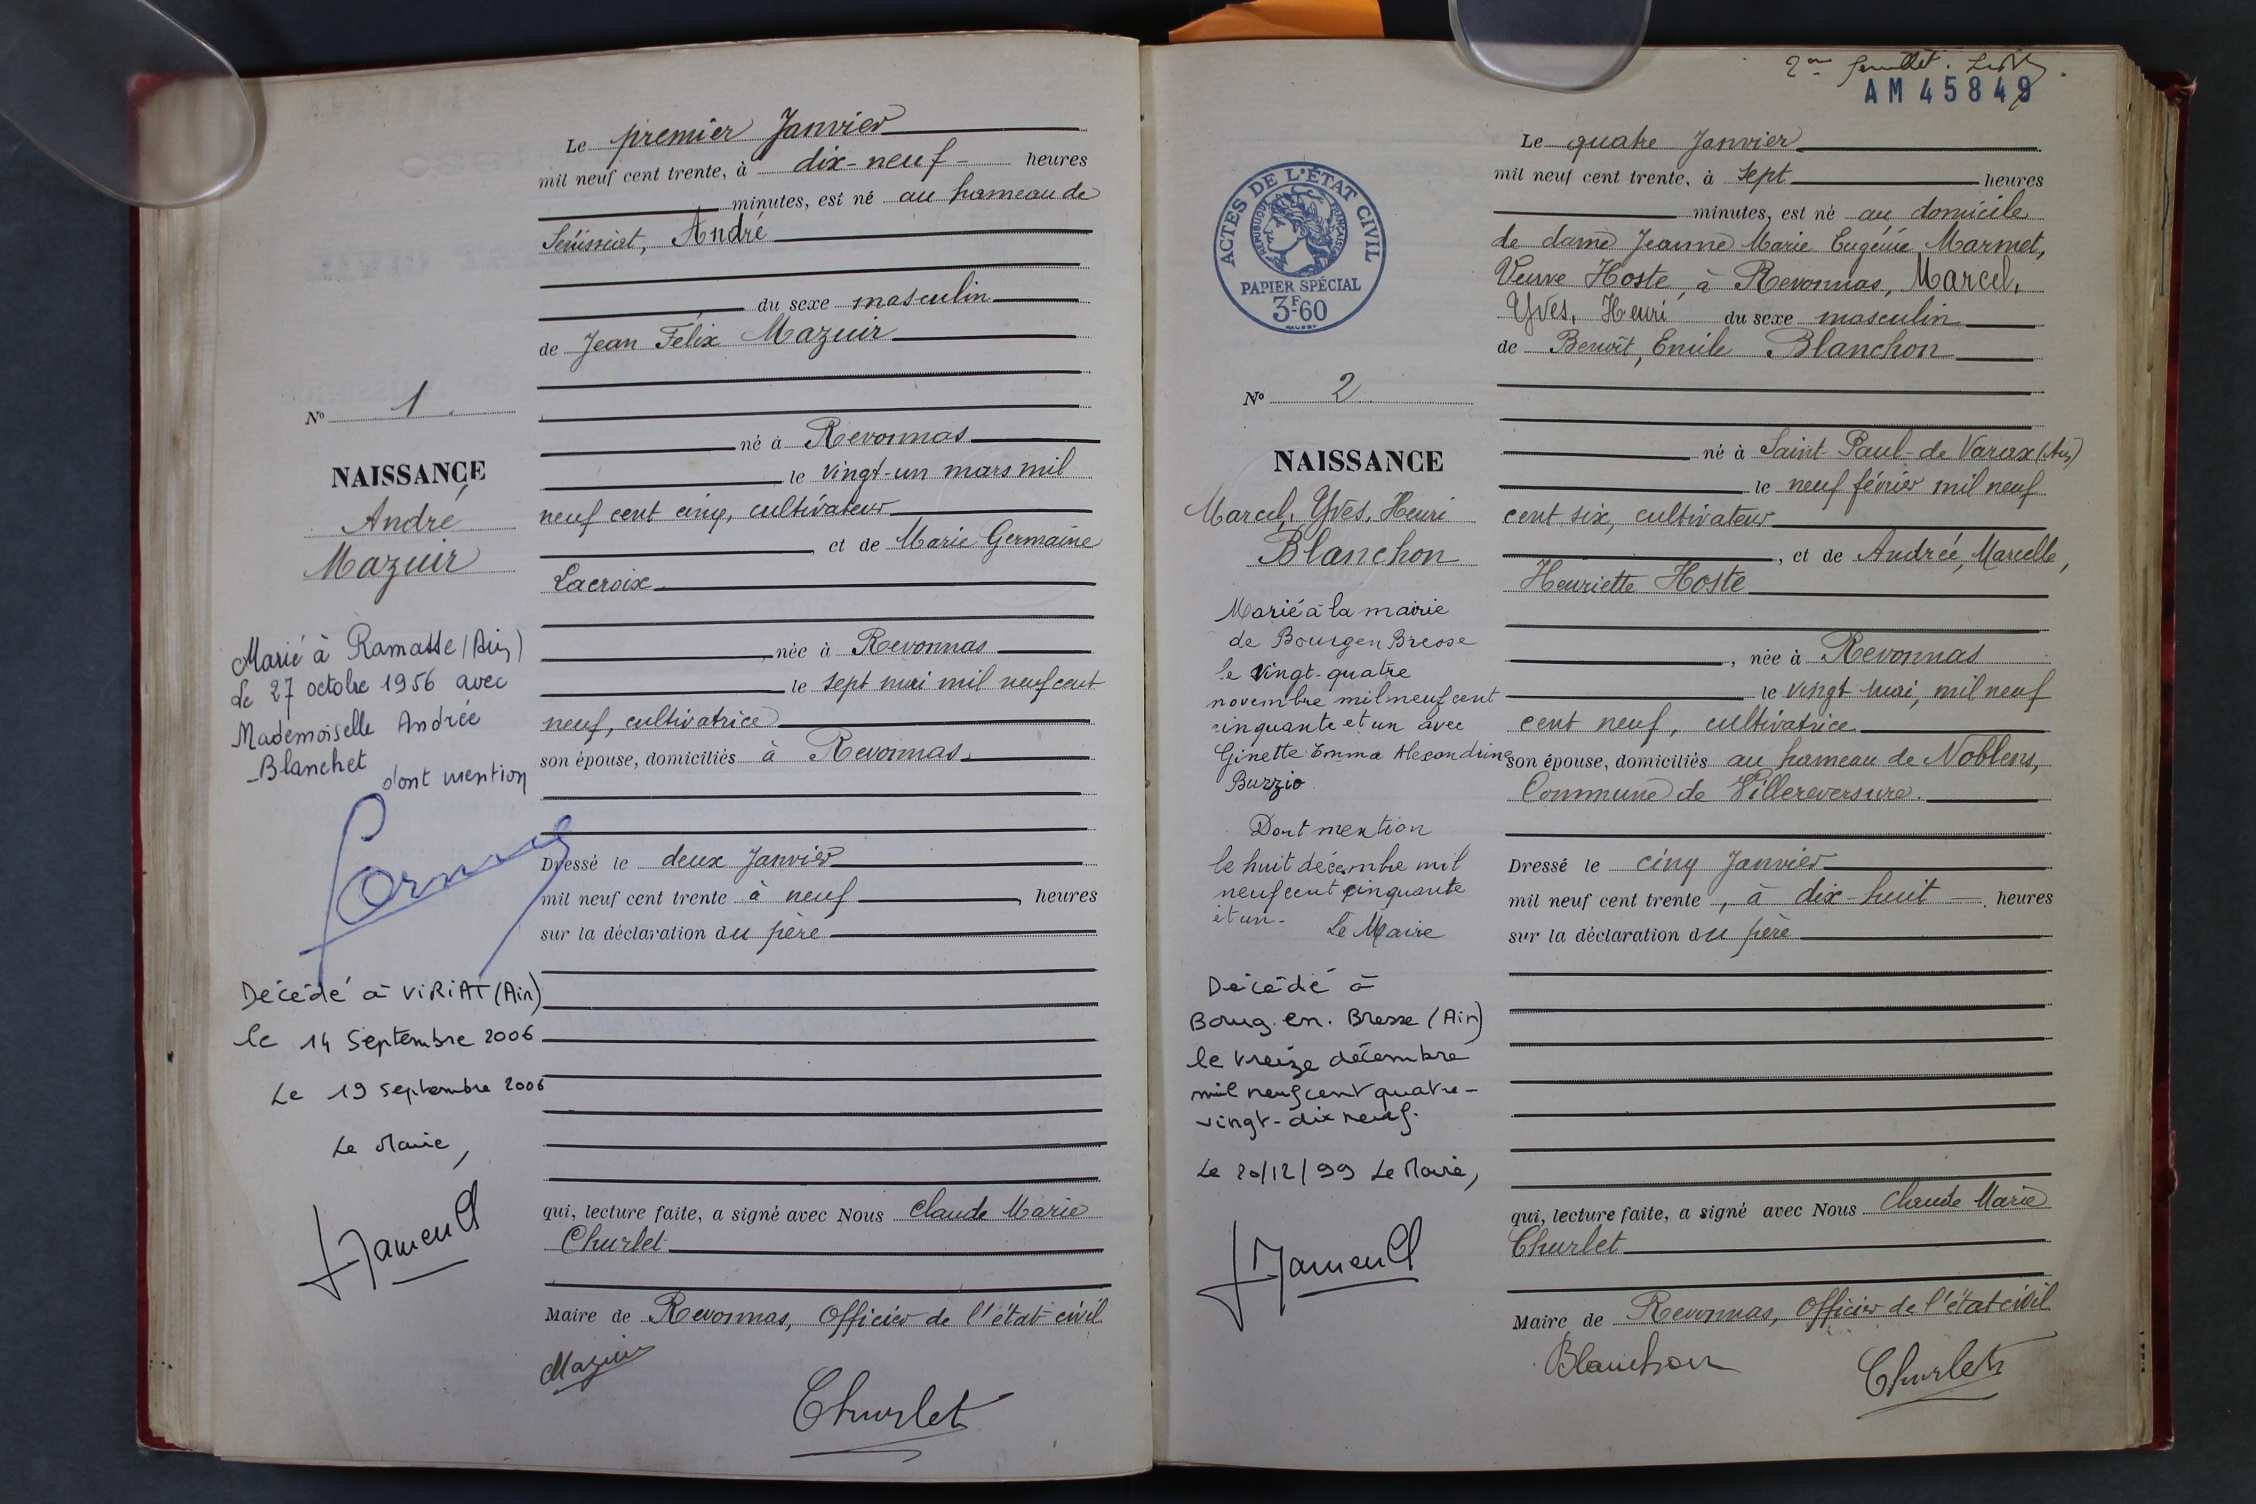 Le premier Janvier
mil neuf cent trente, à dix-neuf - heures
minutes, est né au hameau de
André
du sexe masculin
de Jean Félix Mazuir
né à Revonnas
le vingt-un mars mil
neuf cent cinq, cultivateur
et de Marie Germaine
Lacroix
née à Revonnas
le sept mai mil neuf cent
neuf, cultivatrice
son épouse, domiciliés à Revonnas.
Dressé le deux Janvier
mil neuf cent trente à neuf, heures
sur la déclaration du père
qui, lecture faite, a signé avec Nous Claude Marie
Churlet
Maire de Revonnas, Officier de l'état civil
Mazuir
Churlet
Nº 1.
NAISSANCE
André
Mazuir
Marié à Ramasse (Ain)
le 27 octobre 1956 avec
Mademoiselle Andrée
Blanchet
dont mention
Décédé à VIRIAT (Ain)
le 14 Septembre 2006
Le 19 Septembre 2006
Le Maire,
2me feuillet.
AM 45849
ACTES DE L'ÉTAT CIVIL
RÉPUBLIQUE FRANÇAISE
PAPIER SPÉCIAL
3F.60
Nº 2
NAISSANCE
Marcel, Yves, Henri
Blanchon
Marié à la mairie
de Bourg en Bresse
le vingt-quatre
novembre mil neuf cent
cinquante et un avec
Ginette Emma Alexandrine
Buzzio
Dont mention
le huit décembre mil
neuf cent cinquante
et un -
Le Maire
Décédé à
Bourg. en. Bresse (Ain)
le treize décembre
mil neuf cent quatre-
vingt-dix neuf.
Le 20/12/99 Le Maire,
Le quatre Janvier
mil neuf cent trente, à sept heures
minutes, est né au domicile
de dame Jeanne Marie Eugénie Marmet,
Veuve Hoste, à Revonnas, Marcel,
Yves, Henri du sexe masculin
de Benoît, Emile Blanchon
né à Saint-Paul-de Varax (Ain)
le neuf février mil neuf
cent six, cultivateur
, et de Andrée, Marcelle,
Henriette Hoste
, née à Revonnas
le vingt mai, mil neuf
cent neuf, cultivatrice
son épouse, domiciliés au hameau de Noblens,
Commune de Villereversure.
Dressé le cinq Janvier
mil neuf cent trente, à dix-huit - heures
sur la déclaration du père
qui, lecture faite, a signé avec Nous Claude Marie
Churlet
Maire de Revonnas, Officier de l'état civil
Blanchon
Churlet